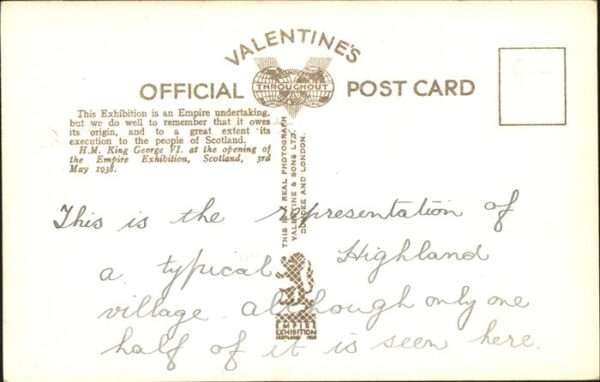 VALENTINE'S
THROUGHOUT
OFFICIAL POST CARD
This Exhibition is an Empire undertaking,
but we do well to remember that it owes
its origin, and to a great extent its
execution to the people of Scotland.
H.M. King George VI. at the opening of
the Empire Exhibition, Scotland, 3rd
May 1938.
THIS IS A REAL PHOTOGRAPH
VALENTINE & SONS LTD.
DUNDEE AND LONDON.
This is the representation of
a typical Highland
village although only one
half of it is seen here.
EMPIRE
EXHIBITION
SCOTLAND 1938